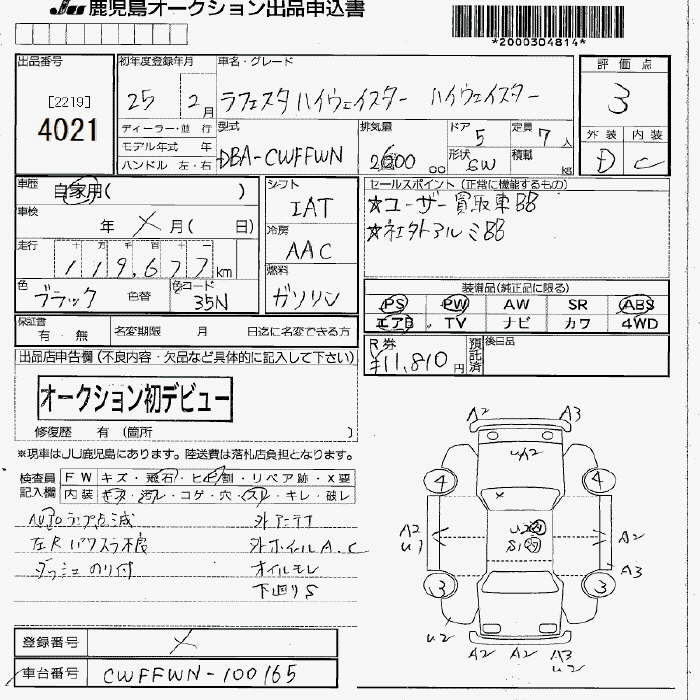 JU 鹿児島オークション出品申込書
*2000304814*
出品番号
[2219]
4021
初年度登録年月
25 2月
車名・グレード
ラフェスタハイウェイスター ハイウェイスター
評価点
3
外装 内装
D C
ディーラー・並 行
モデル年式 年
ハンドル 左・右
型式
DBA-CWFFWN
排気量
2000 cc
ドア 5
形状 SW
定員 7人
積載 kg
車歴
自家用( )
車検
年 × 月( 日)
走行
十 万 千 百 十 一
119,677 km
色
ブラック
色替
色コード
35N
シフト
IAT
冷房
AAC
燃料
ガソリン
セールスポイント (正常に機能するもの)
☆ユーザー買取車BB
☆社外アルミBB
装備品(純正品に限る)
PS PW AW SR ABS
エアB TV ナビ カワ 4WD
保証書
有・無
名変期限 月 日迄に名変できる方
R券
¥11,810
預託済
後日品
出品店申告欄(不良内容・欠品など具体的に記入して下さい)
オークション初デビュー
修復歴 有 (箇所 )
※現車はJU鹿児島にあります。陸送費は落札店負担となります。
検査員記入欄
FW キズ・飛石・ヒビ割・リペア跡・X要
内装 キズ・汚レ・コゲ・穴・スレ・キレ・破レ
AUTOランプ点滅 外アンテナ
左Rパワスラ不良 外ホイルA.C
ダッシュのり付 オイルモレ
下廻りS
A2 A3
UA2
4 4
A2
U1
U2
S1
A2
A3
3 3
U2
A2 A2 A3
U2
登録番号 ×
車台番号 CWFFWN-100165